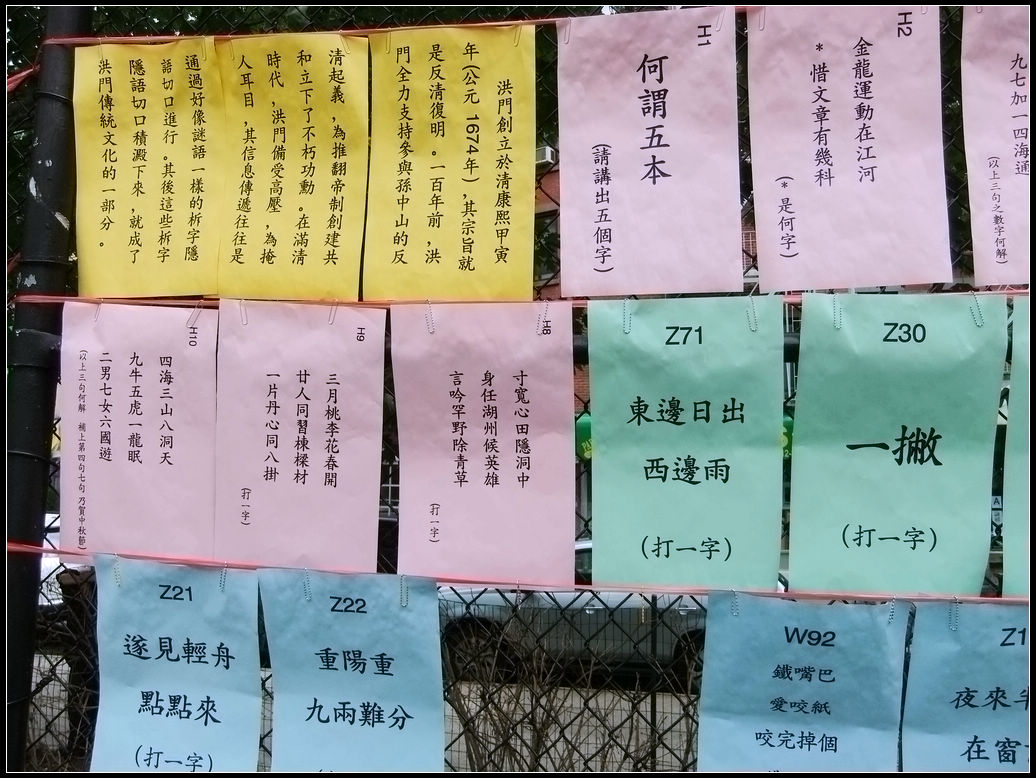 洪門創立於清康熙甲寅
年(公元 1674 年)，其宗旨就
是反清復明。一百年前，洪
門全力支持參與孫中山的反
清起義，為推翻帝制創建共
和立下了不朽功勳。在滿清
時代，洪門備受高壓，為掩
人耳目，其信息傳遞往往是
通過好像謎語一樣的柝字隱
語切口進行。其後這些柝字
隱語切口積澱下來，就成了
洪門傳統文化的一部分。
H1
何謂五本
(請講出五個字)
H2
金龍運動在江河
*惜文章有幾科
(*是何字)
九七加一四海通
(以上三句之數字何解)
H10
四海三山八洞天
九牛五虎一龍眠
二男七女六國遊
(以上三句何解 補上第四句七句 乃賀中秋節)
H9
三月桃李花春開
廿人同習棟樑材
一片丹心同八掛
(打一字)
H8
寸寬心田隱洞中
身任湖州候英雄
言吟罕野除青草
(打一字)
Z71
東邊日出
西邊雨
(打一字)
Z30
一撇
(打一字)
Z21
遂見輕舟
點點來
(打一字)
Z22
重陽重
九兩難分
W92
鐵嘴巴
愛咬紙
咬完掉個
Z1
夜來
在窗